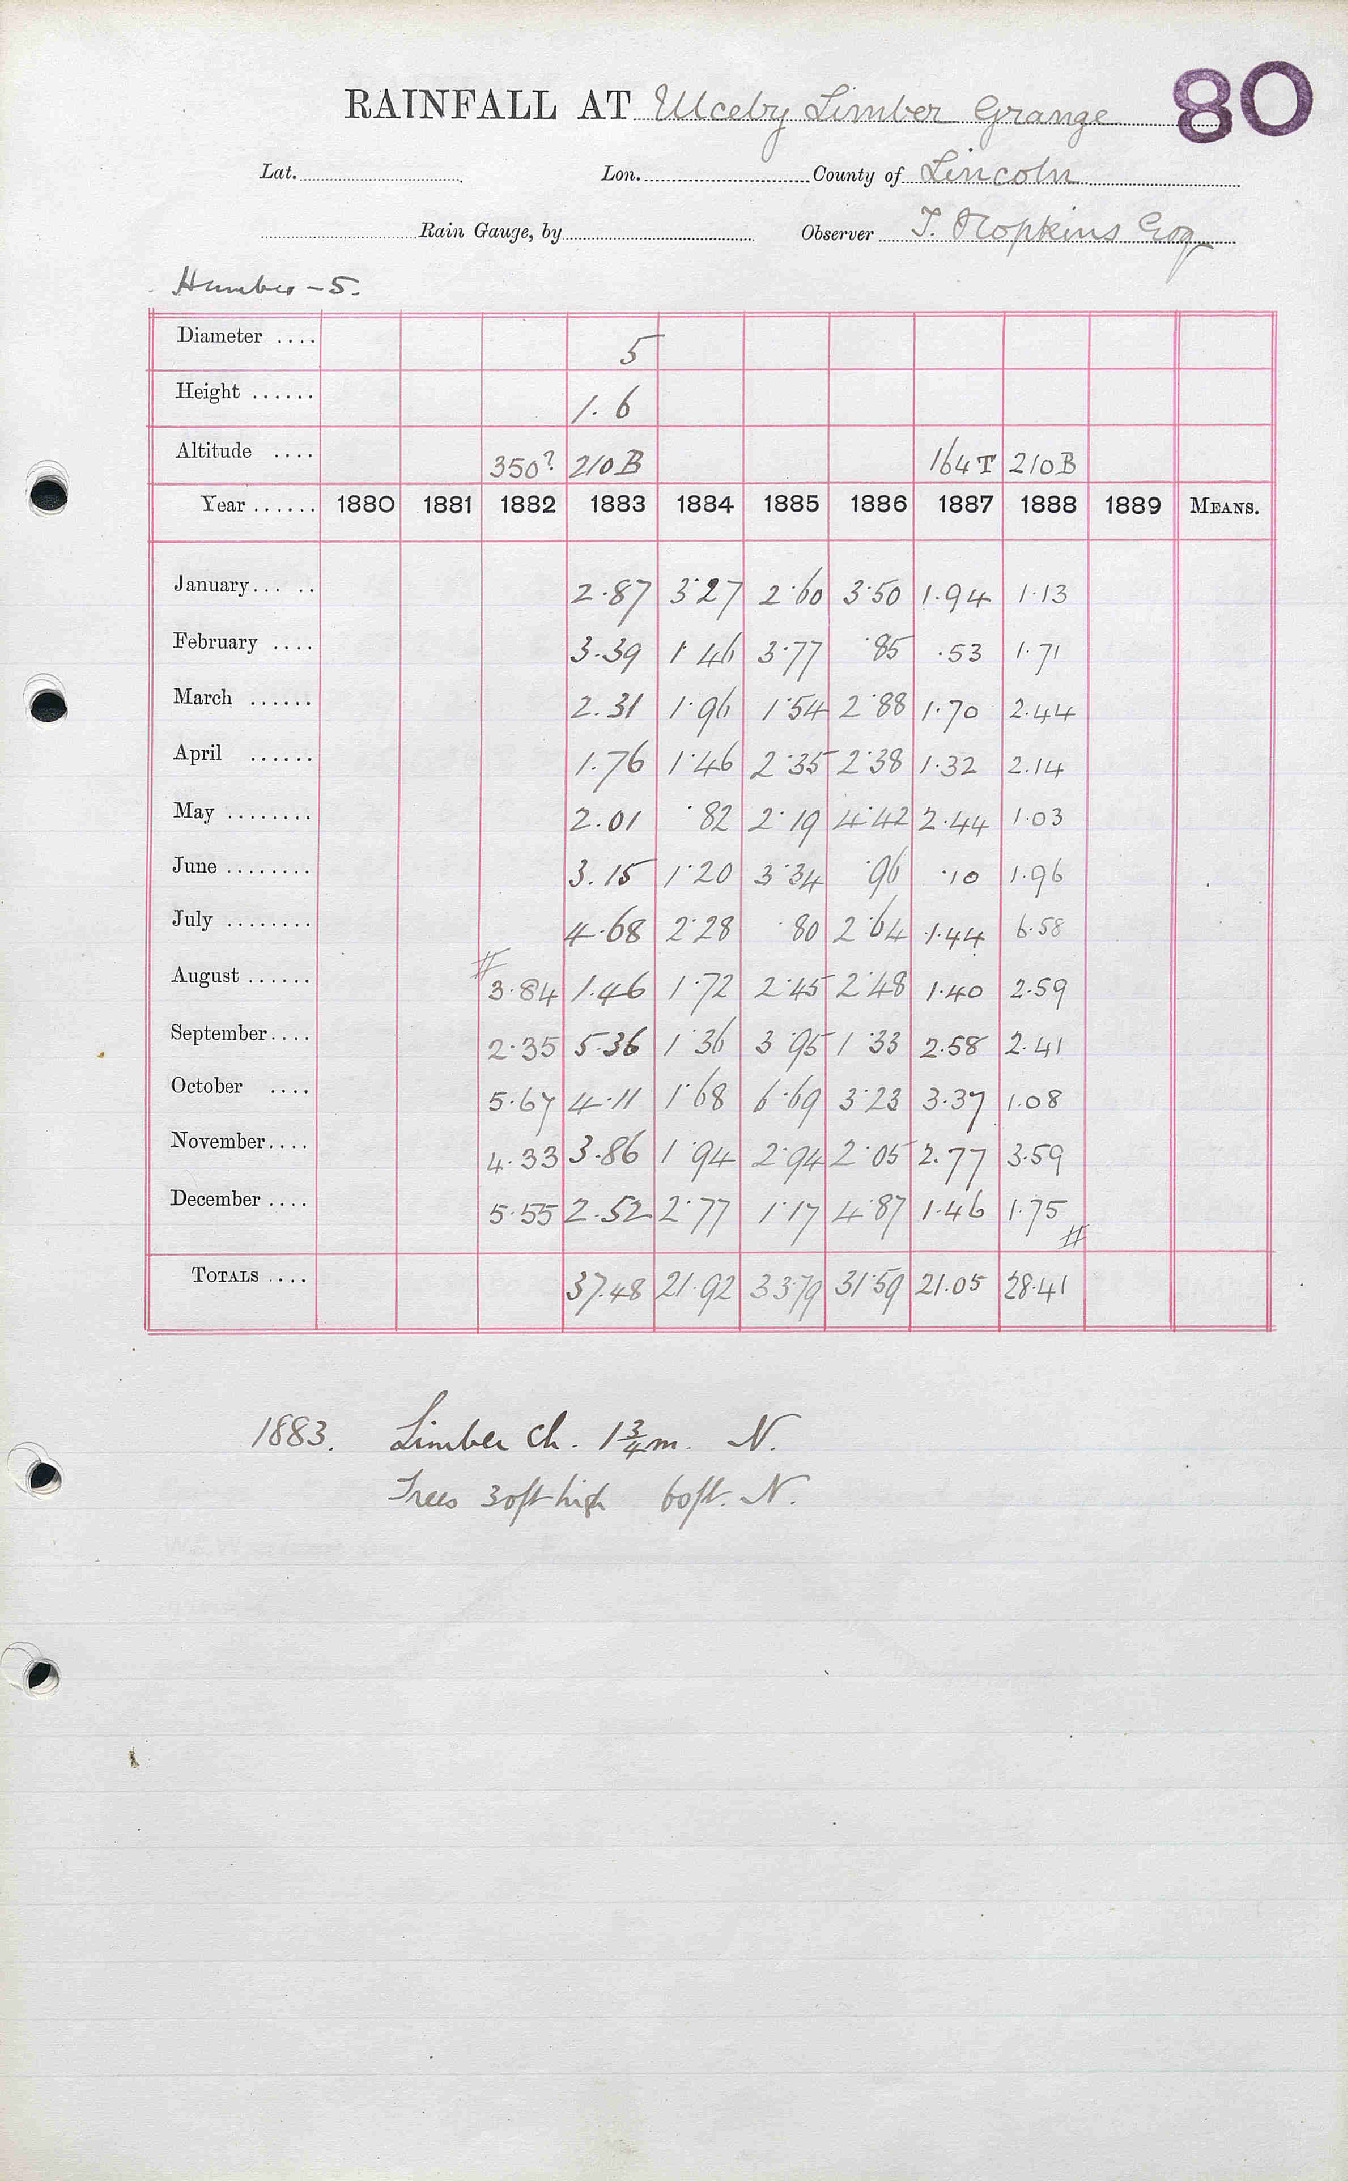 80
RAINFALL AT Ulceby Limber Grange
Lat. Lon. County of Lincoln
Rain Gauge, by Observer T. Hopkins Esq
Humber - 5.
Diameter .... 5
Height ...... 1.6
Altitude .... 350? 210B 164T 210B
Year ...... 1880 1881 1882 1883 1884 1885 1886 1887 1888 1889 MEANS.
January... .. 2.87 3.27 2.60 3.50 1.94 1.13
February .... 3.39 1.46 3.77 .85 .53 1.71
March ...... 2.31 1.96 1.54 2.88 1.70 2.44
April ...... 1.76 1.46 2.35 2.38 1.32 2.14
May ........ 2.01 .82 2.19 4.42 2.44 1.03
June ........ 3.15 1.20 3.34 .96 .10 1.96
July ........ 4.68 2.28 .80 2.64 1.44 6.58
August ...... # 3.84 1.46 1.72 2.45 2.48 1.40 2.59
September.... 2.35 5.36 1.36 3.95 1.33 2.58 2.41
October .... 5.67 4.11 1.68 6.69 3.23 3.37 1.08
November.... 4.33 3.86 1.94 2.94 2.05 2.77 3.59
December .... 5.55 2.52 2.77 1.17 4.87 1.46 1.75 #
TOTALS .... 37.48 21.92 33.79 31.59 21.05 28.41
1883. Limber Ch. 1¾m. N.
Trees 30ft high 60ft. N.